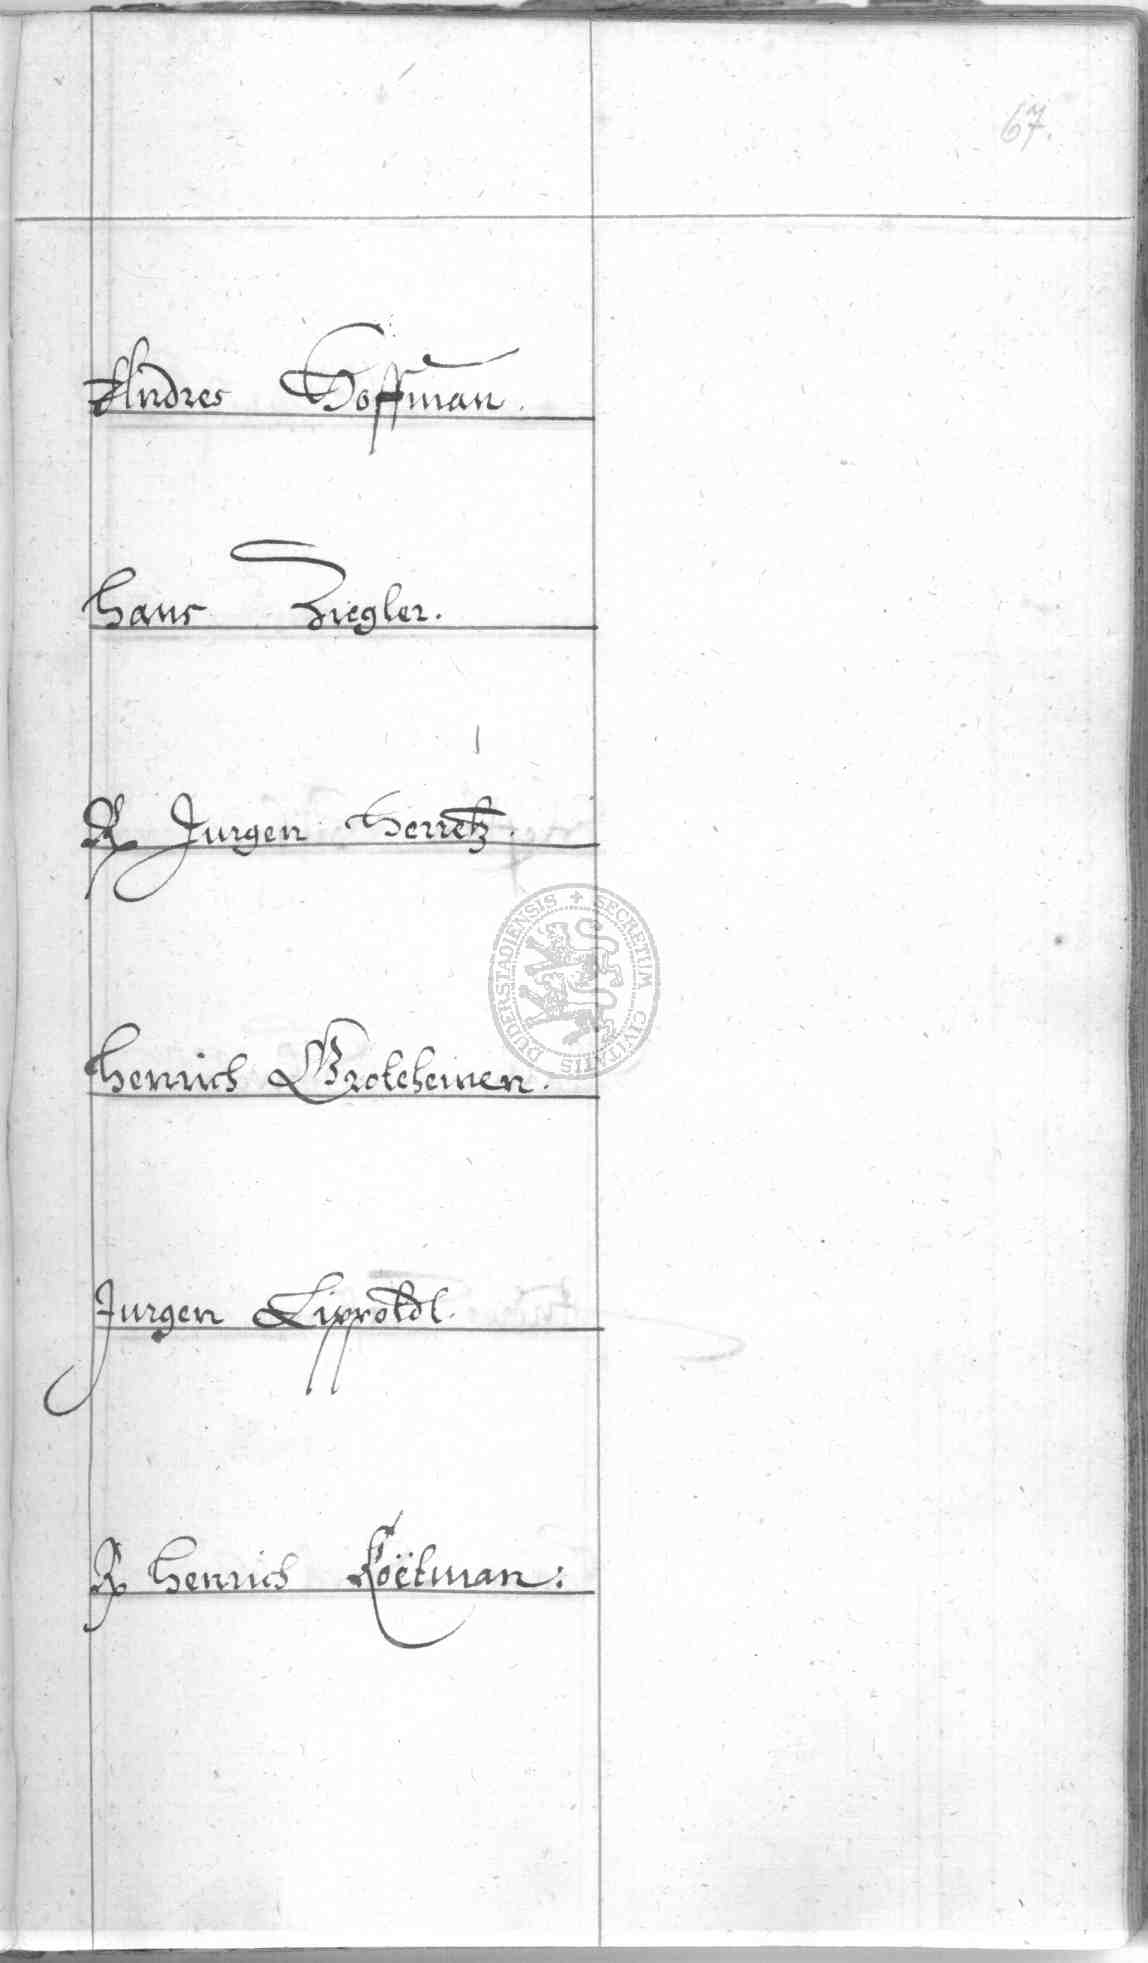 67.
Andres Hoffman.
Hans Ziegler.
R Jurgen Herretz.
DUDERSTADIENSIS + SECRETUM CIVITATIS
Henrich Grotehenen.
Jurgen Lippoldt.
R Henrich Koëtman: